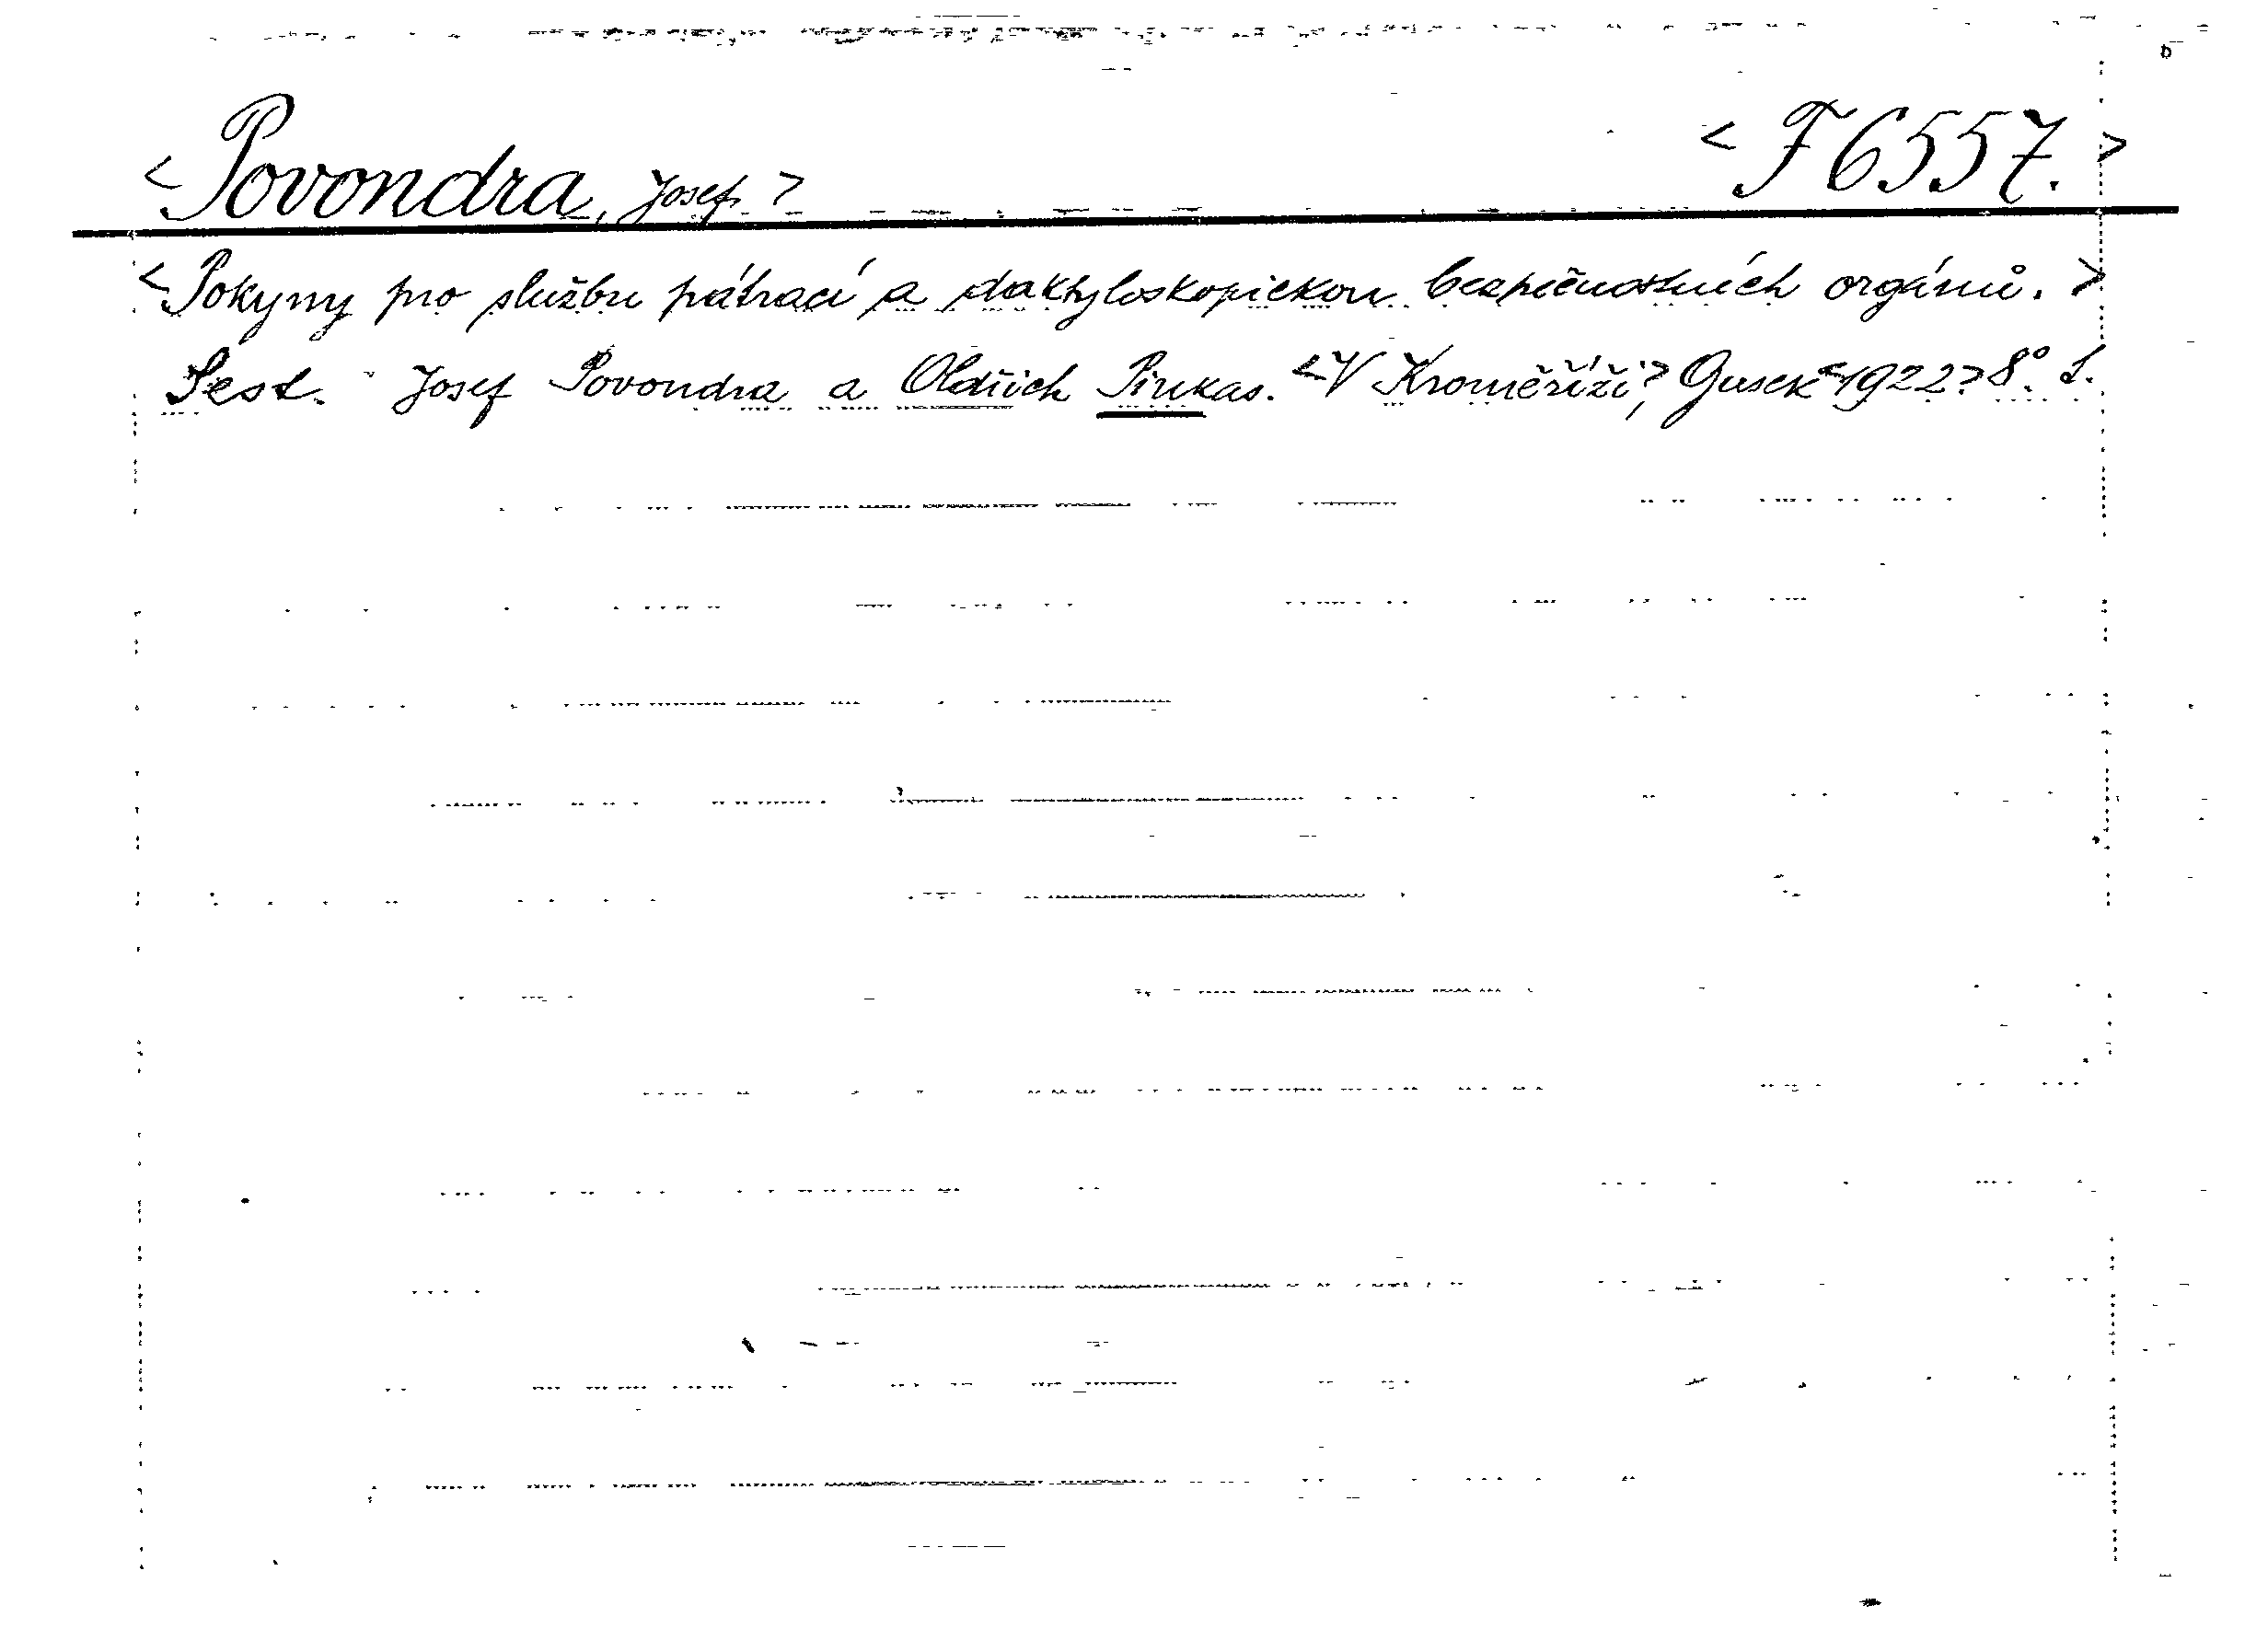 <Povondra, Josef.> <F 6557.>
<Pokyny pro službu pátrací a daktyloskopickou bezpečnostních orgánů.>
Sest. Josef Povondra a Oldřich Pinkas. <V Kroměříži>, Gusek <1922> 8°. S.